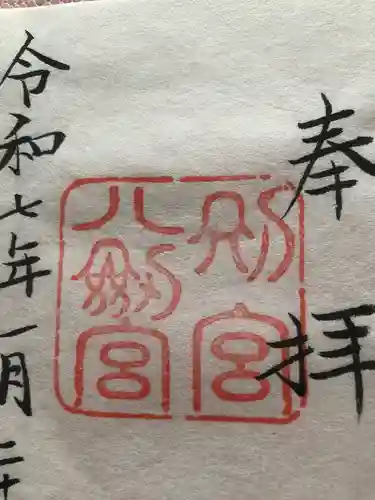 奉拝
別宮
八剣宮
令和七年一月二十